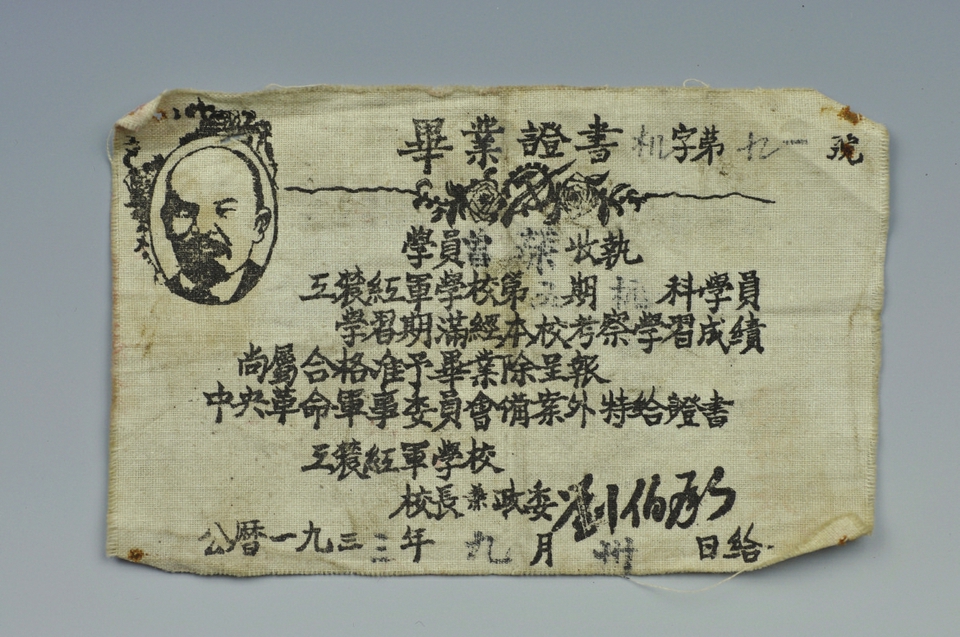 畢業證書 机字苐九一號
學員曾 收執
工農紅軍學校第五期 科學員
學習期滿經本校考察學習成績
尚屬合格准予畢業除呈報
中央革命軍事委員會備案外特給證書
工農紅軍學校
校長兼政委劉伯承
公曆一九三三年九月卅日給